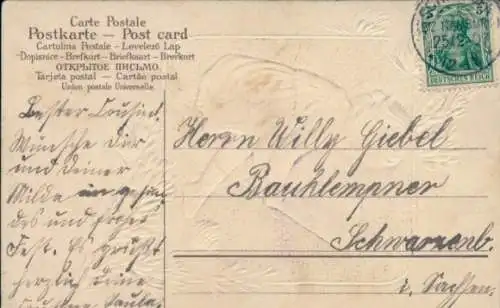 Carte Postale
Postkarte — Post card
Cartolina Postale - Levelező Lap
Dopisnice - Brefkort - Briefkaart - Brevkort
ОТКРЫТОЕ ПИСЬМО
Tarjeta postal — Cartão postal
Union postale Universelle.
DEUTSCHES REICH
Herrn Willy Giebel
Bauklempner
Schwarzenb.
i. Sachsen.
Bester Cousin.
Wünsche Dir
und Deiner
Milda ein gesun
des und frohes
Fest. Es grüßt
herzlich Deine
Paula